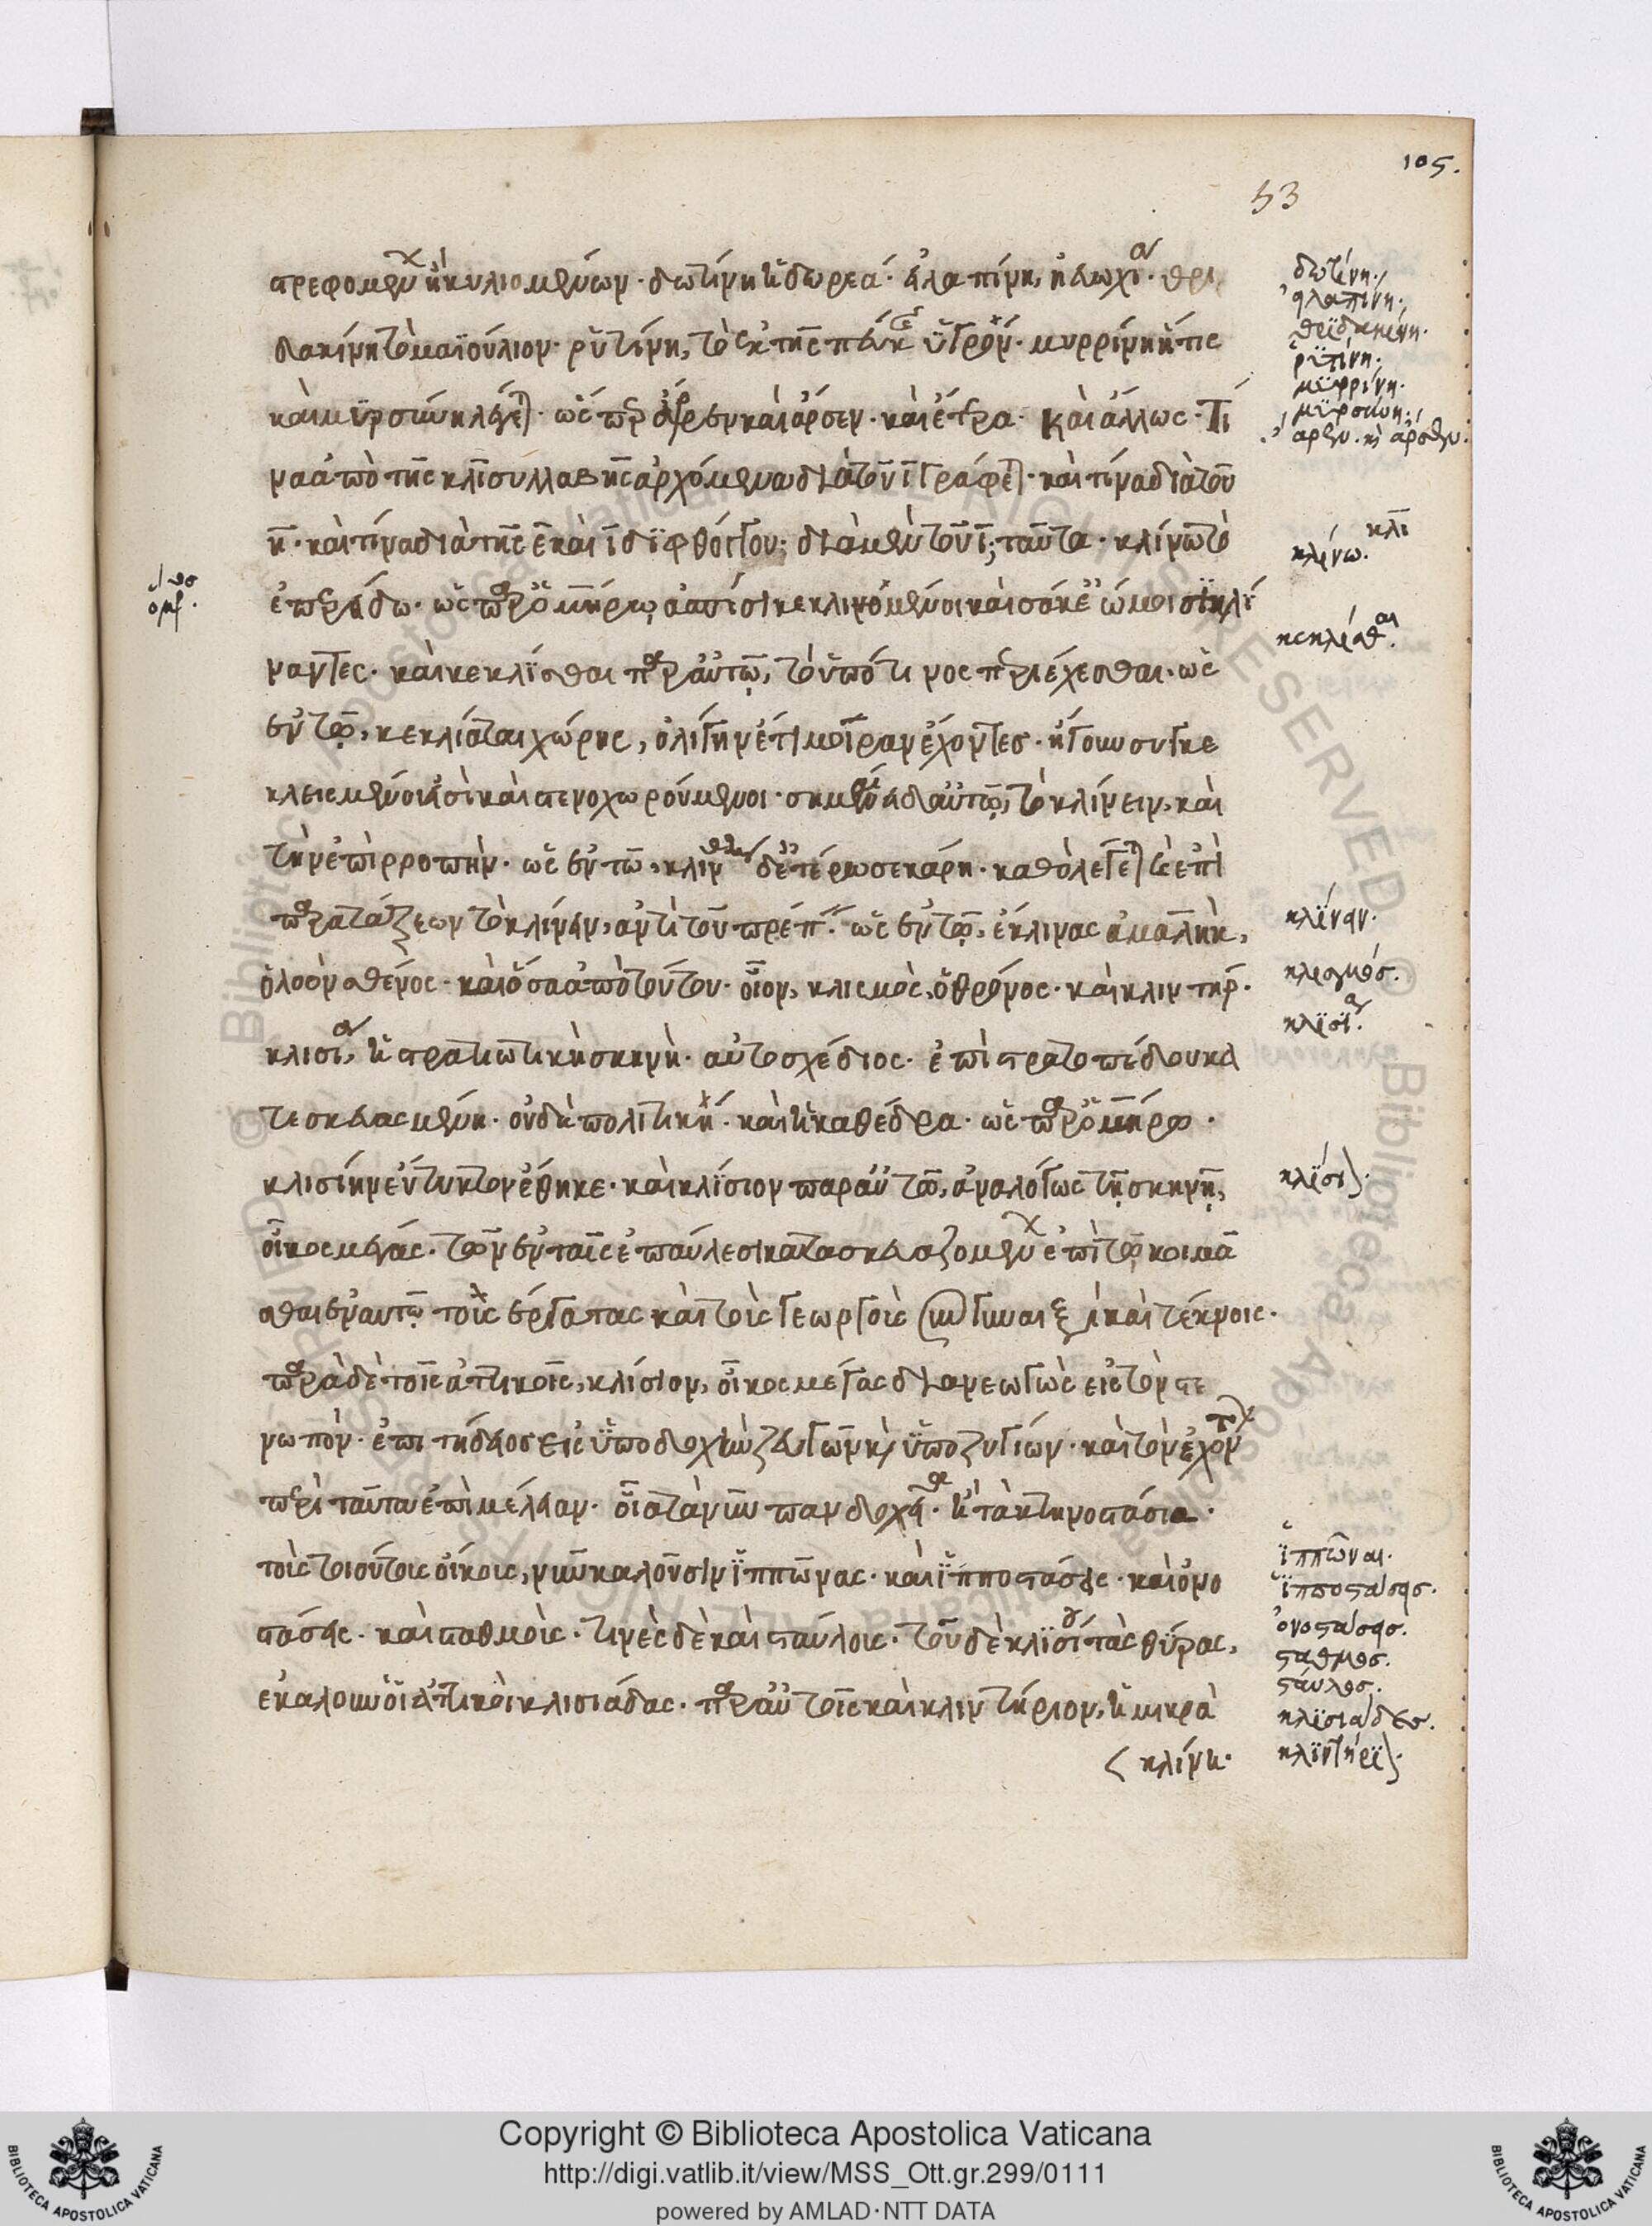 105.
53
στρεφομένων ἢ κυλιομένων· δωτίνη ἡ δωρεά· εἰλαπίνη, ἡ εὐωχία· θρι
δακίνη τὸ μαϊούλιον· ῥυτίνη, τὸ ἐκ τῆς πεύκης ὑγρόν· μυρρίνη ἥτις
καὶ μυρσίνη λέγεται· ὡς παρ ἄρρεν καὶ ἄρσεν· καὶ ἕτερα· καὶ ἄλλως· Τί
να ἀπὸ τῆς κλι συλλαβῆς ἀρχόμενα διὰ τοῦ ι γράφεται· καὶ τίνα διὰ τοῦ
η· καὶ τίνα διὰ τῆς ε καὶ ι διφθόγγου; διὰ μὲν τοῦ ι; ταῦτα· κλίνω τὸ
ἐπερείδω· ὡς παρ ὁμήρῳ, ἀσπίσι κεκλιμένοι καὶ σάκε ὤμοισι κλί
ναντες· καὶ κεκλίσθαι παρ αὐτῷ, τὸ ὑπό τινος περιέχεσθαι· ὡς
ἐν τῷ, κεκλίαται χώρης, ὀλίγην ἔτι μοῖραν ἔχοντες· ἤγουν συγκε
κλεισμένοι εἰσὶ καὶ στενοχωρούμενοι· σημαίνει δὲ αὐτῷ, τὸ κλίνειν, καὶ
τὴν ἐπιρροπήν· ὡς ἐν τῷ, κλίνθη δ ἑτέρωσε κάρη· καθὸ λέγεται καὶ ἐπὶ
παρατάξεων τὸ κλίνειν, ἀντὶ τοῦ τρέπειν· ὡς ἐν τῷ, ἔκλινας ἀμαλὴκ,
ὀλοὸν σθένος· καὶ ὅσα ἀπὸ τούτου· οἷον, κλισμὸς, ὁ θρόνος· καὶ κλιντήρ·
κλισία, ἡ στρατιωτικὴ σκηνὴ· αὐτοσχέδιος· ἐπὶ στρατοπέδου κα
τεσκευασμένη· οὐ δὴ πολιτική· καὶ ἡ καθέδρα· ὡς παρ ὁμήρῳ·
κλισίην εὔτυκτον ἔθηκε· καὶ κλίσιον παρ αὐτῷ, ἀναλόγως τῇ σκηνῇ,
οἶκος μέγας· τῶν ἐν ταῖς ἐπαύλεσι κατασκευαζομένων ἐπὶ τῷ κοιμᾶ
σθαι ἐν αυτῷ τοὺς ἐργάτας καὶ τοῖς γεωργοῖς σὺν γυναιξὶ καὶ τέκνοις·
παρὰ δὲ τοῖς ἀττικοῖς, κλίσιον, οἶκος μέγας διανεωγὼς εἰς τὸν στε
νωπὸν· ἐπιτήδειος εἰς ὑποδοχὴν ζευγῶν καὶ ὑποζυγίων· καὶ τὸν ἐχόντων
περὶ ταῦτα ἐπιμέλειαν· οἷα τὰ νῦν πανδοχεῖα· ἢ τὰ κτηνοστάσια·
τοῖς τοιούτοις οἴκοις, νῦν καλοῦσιν ἱππῶνας· καὶ ἱπποστάσεις· καὶ ὀνο
στάσεις· καὶ σταθμοὶς· τινὲς δὲ καὶ σταύλοις· τοῦ δὲ κλισίου τὰς θύρας,
ἐκάλουν οἱ ἀττικοὶ κλισιάδας· παρ αὐτοῖς καὶ κλιντήριον, ἡ μικρὰ
κλίνη·
δωτίνη·
εἰλαπίνη·
ῥυτίνη·
μυρρίνη·
μυρσίνη·
κλι
κλίνω·
κλίνειν·
κλισμός·
κλισία·
κλίσιον·
ἱππῶναι·
ἱπποστάσεις·
ὀνοστάσεις·
σταθμός·
σταύλος·
κλισιάδες·
κλιντήριον·